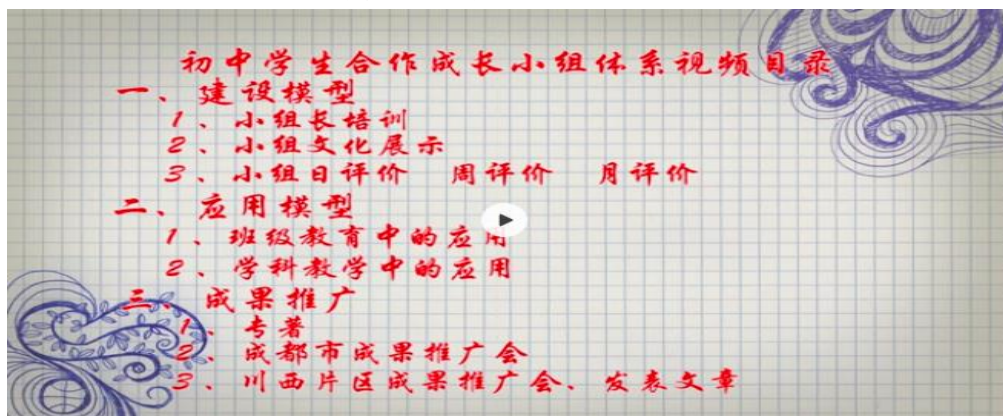 初中学生合作成长小组体系视频目录
一、建设模型
1、小组长培训
2、小组文化展示
3、小组日评价 周评价 月评价
二、应用模型
1、班级教育中的应用
2、学科教学中的应用
三、成果推广
1、专著
2、成都市成果推广会
3、川西片区成果推广会、发表文章